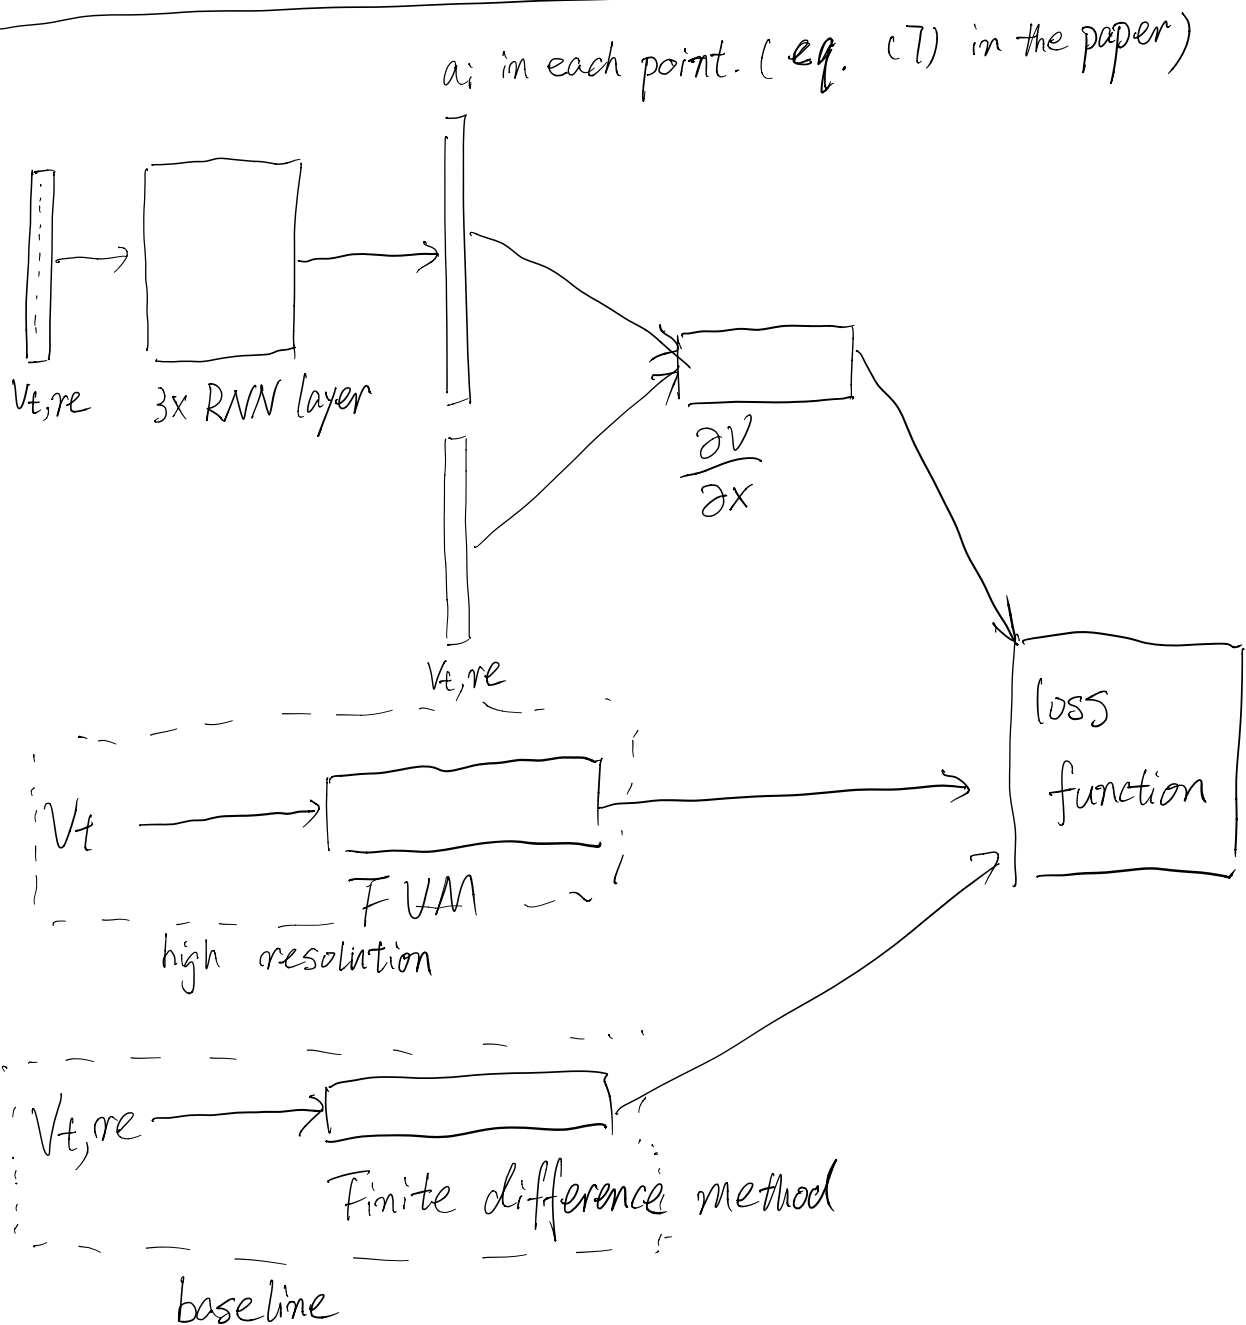 ai in each point. (eq. (7) in the paper)
Vt,re
3x RNN layer
∂V
∂x
Vt,re
loss
function
Vt
FVM
high resolution
Vt,re
Finite difference method
baseline